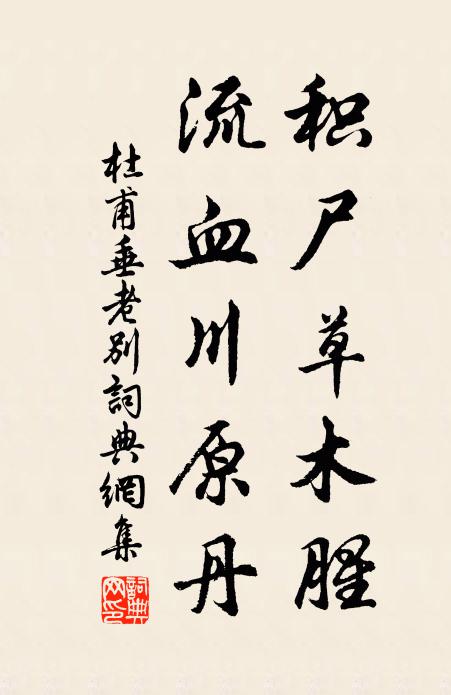 积尸草木腥
流血川原丹
杜甫垂老别詞典網集
詞典網印